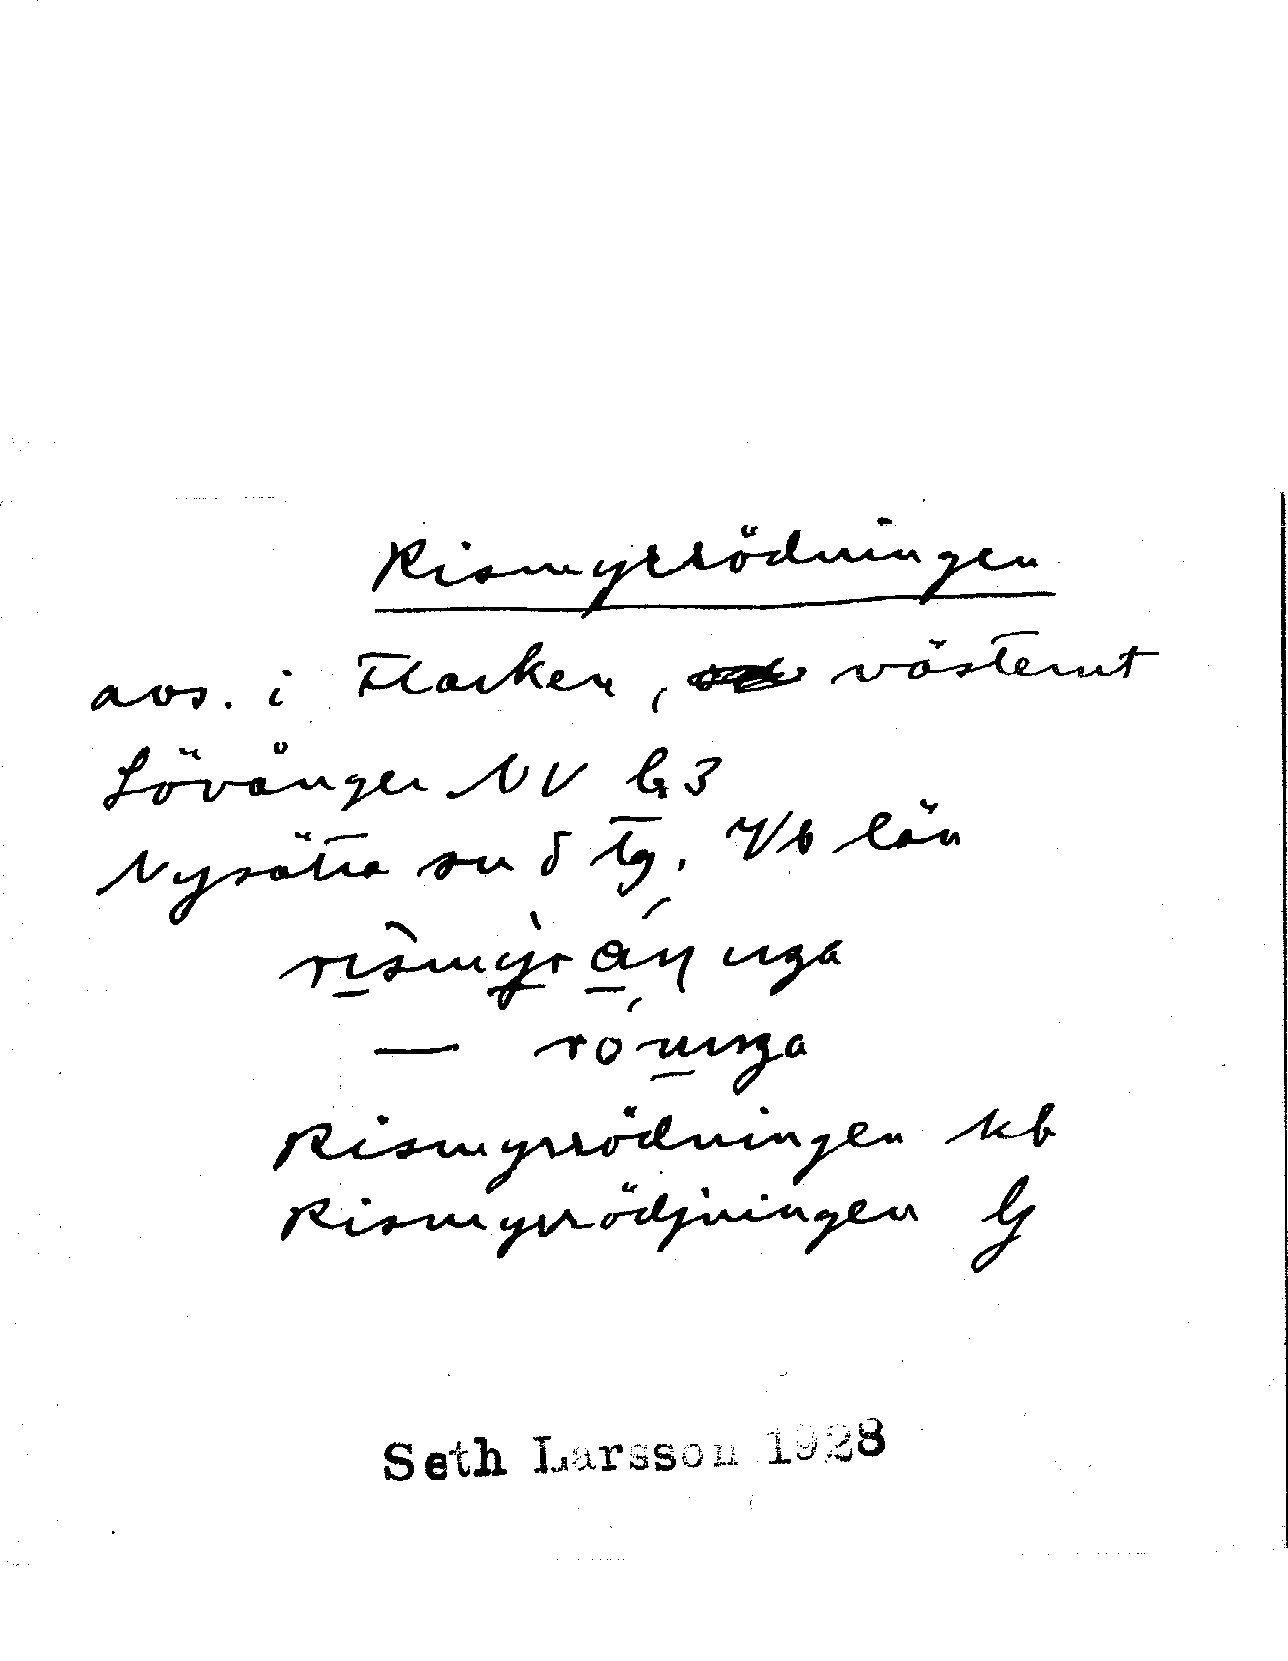 Rismyrrödningen
avs. i Flarken, västerut
Lövånger NV b 3
Nysätra sn S Tg. Vb län
— 
Rismyrrödningen kb
Rismyrrödjningen Lj
Seth Larsson 1928